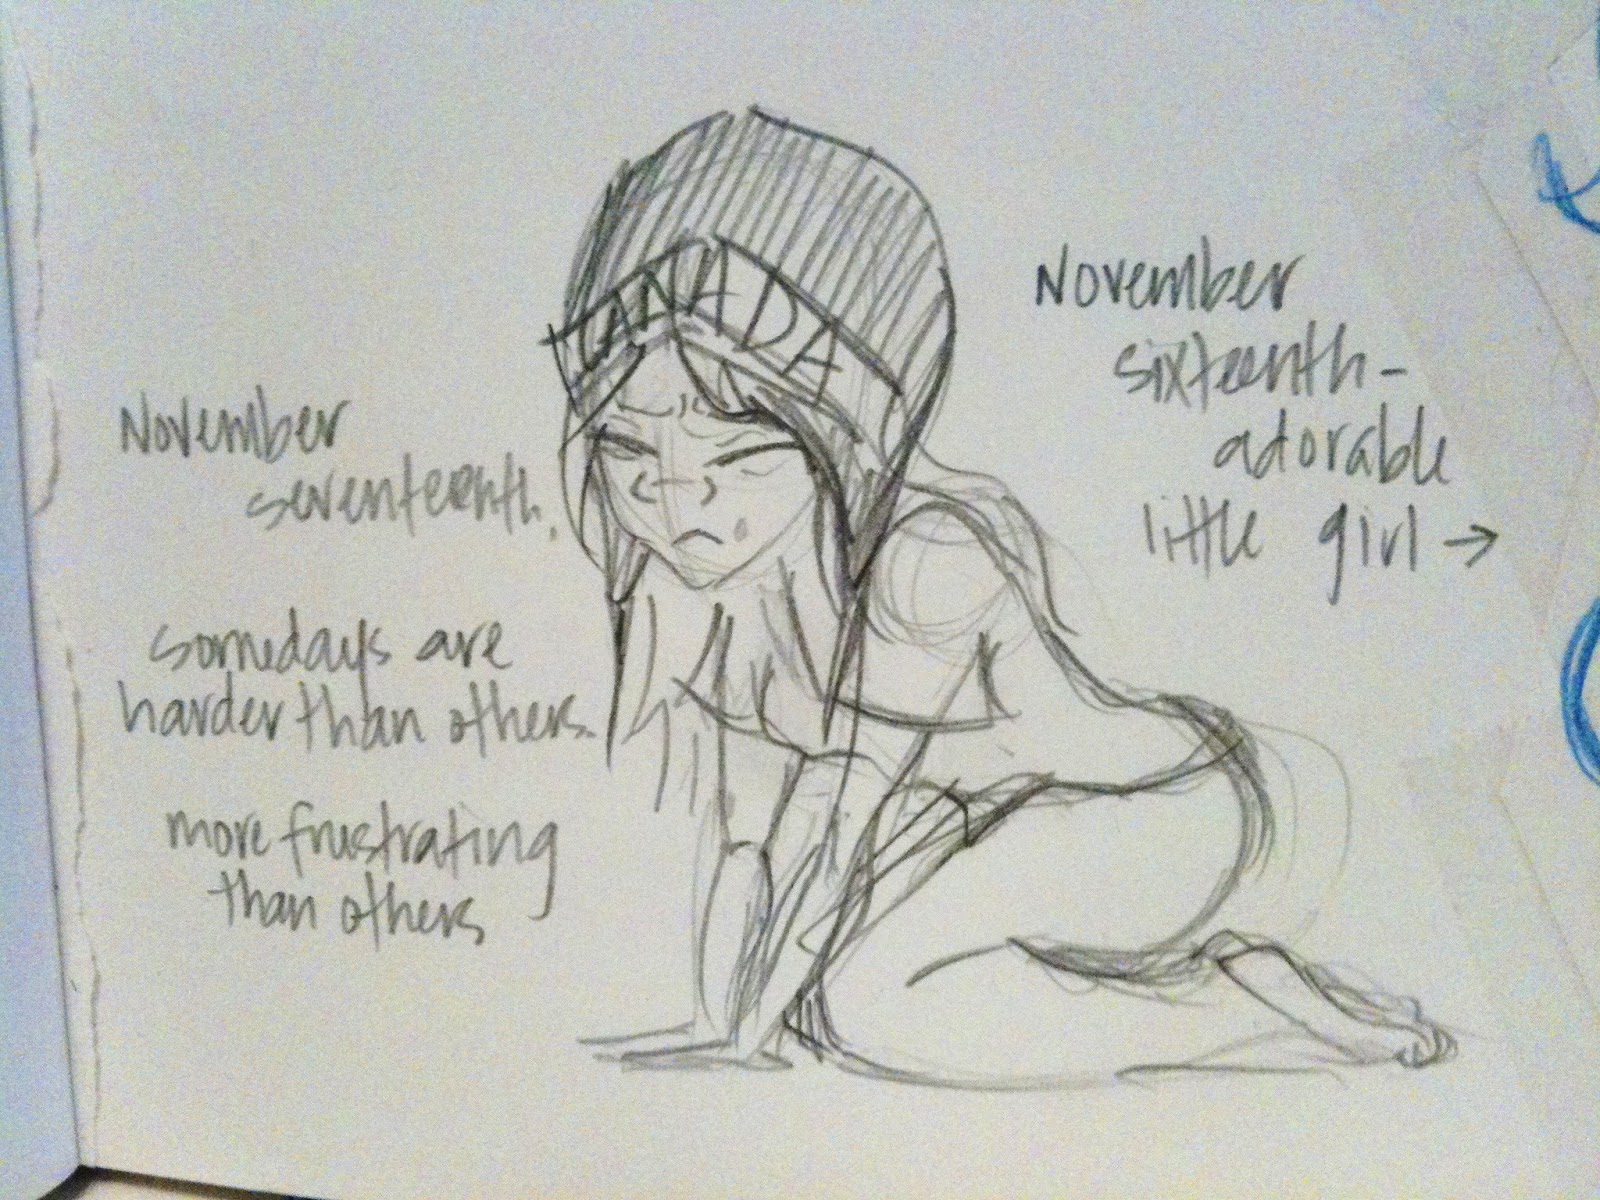 November
seventeenth.
somedays are
harder than others.
more frustrating
than others
CANADA
November
sixteenth-
adorable
little girl →